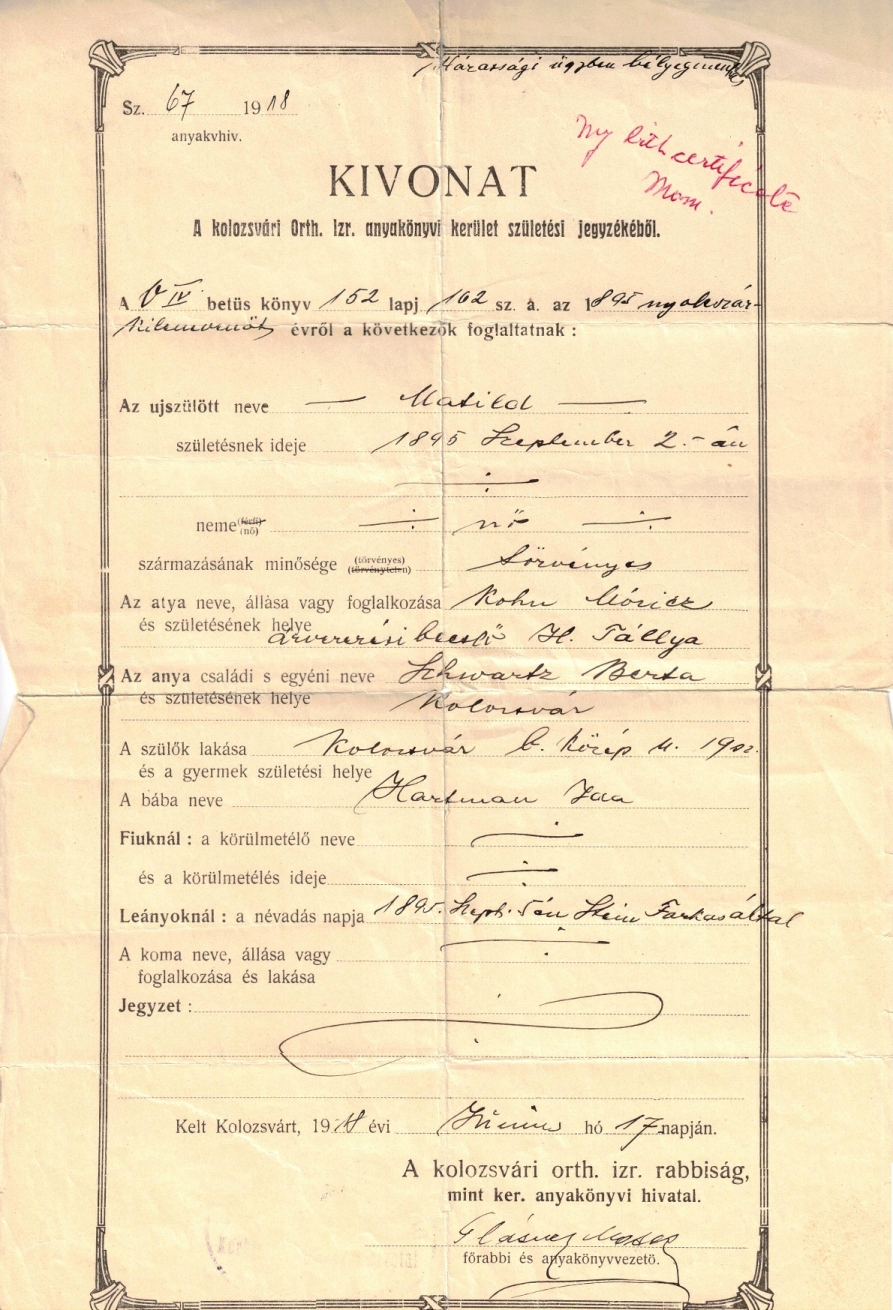 Házassági ügyben bélyegmentes
Sz. 67 1918
anyakvhiv.
My birth certificate
Mom.
KIVONAT
A kolozsvári Orth. Izr. anyakönyvi kerület születési jegyzékéből.
A IV betüs könyv 152 lapj 162 sz. a. az 1895 nyolczszáz-
kilenczvenöt évről a következők foglaltatnak :
Az ujszülött neve Matild
születésnek ideje 1895 Szeptember 2.-án
neme (férfi) (nő) nő
származásának minősége (törvényes) (törvénytelen) törvényes
Az atya neve, állása vagy foglalkozása Kohn Móricz
és születésének helye árverési becslő H. Tállya
Az anya családi s egyéni neve Schwartz Berta
és születésének helye Kolozsvár
A szülők lakása Kolozsvár b. Közép u.
és a gyermek születési helye
A bába neve Hartman Ida
Fiuknál : a körülmetélő neve
és a körülmetélés ideje
Leányoknál : a névadás napja 1895. Szept. 5én Stein Farkas által
A koma neve, állása vagy
foglalkozása és lakása
Jegyzet :
Kelt Kolozsvárt, 1918 évi Június hó 17 napján.
A kolozsvári orth. izr. rabbiság,
mint ker. anyakönyvi hivatal.
Glásner Mózes
főrabbi és anyakönyvvezető.